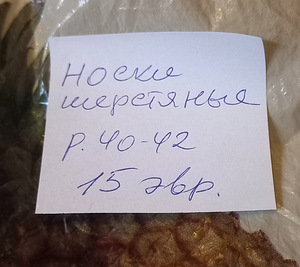 Носки
шерстяные
р. 40-42
15 эвр.